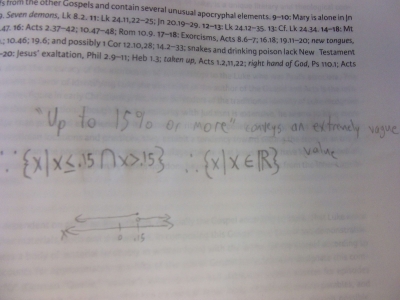 s from the other Gospels and contain several unusual apocryphal elements. 9–10: Mary is alone in Jn
Seven demons, Lk 8.2. 11: Lk 24.11,22–25; Jn 20.19–29. 12–13: Lk 24.12–35. 13: Cf. Lk 24.34. 14–18: Mt
.47. 16: Acts 2.37–42; 10.47–48; Rom 10.9. 17–18: Exorcisms, Acts 8.6–7; 16.18; 19.11–20; new tongues,
.; 10.46; 19.6; and possibly 1 Cor 12.10,28; 14.2–33; snakes and drinking poison lack New Testament
–20: Jesus' exaltation, Phil 2.9–11; Heb 1.3; taken up, Acts 1.2,11,22; right hand of God, Ps 110.1; Acts
"Up to 15% or more" conveys an extremely vague
value
∴ {x|x≤.15 ∩ x>.15} ∴ {x|x∈ℝ}
x 0 .15